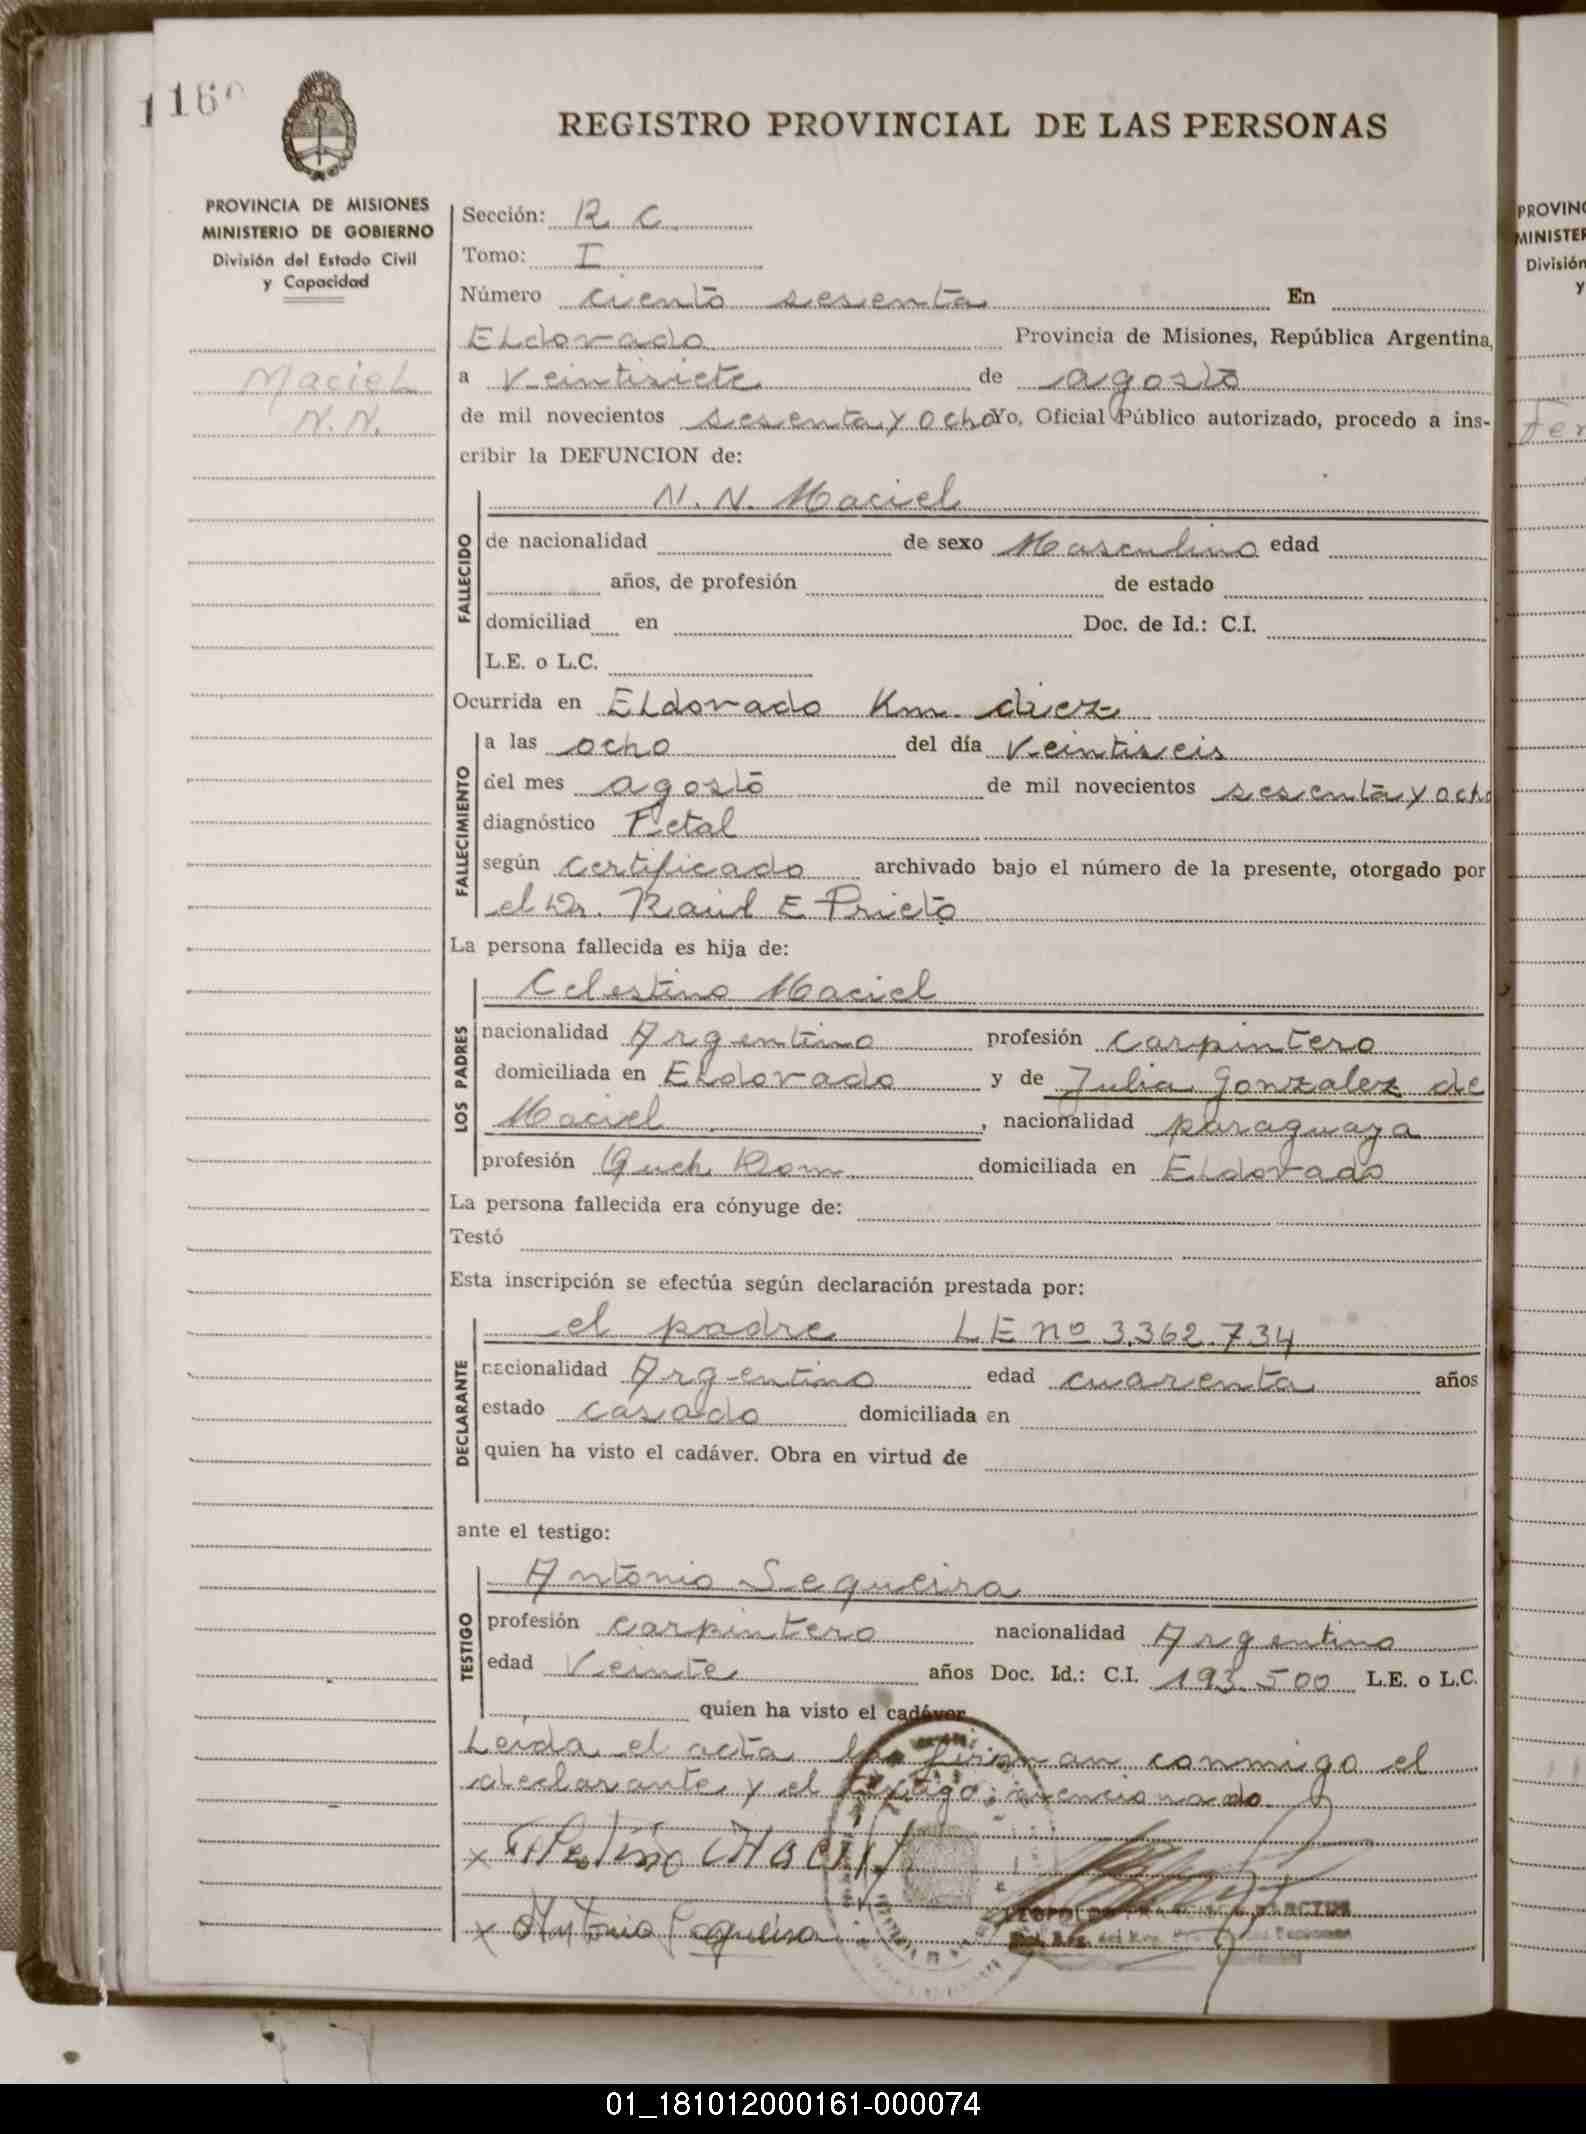 116
REGISTRO PROVINCIAL DE LAS PERSONAS
PROVINCIA DE MISIONES
MINISTERIO DE GOBIERNO
División del Estado Civil
y Capacidad
Maciel
N.N.
Sección: R C.
Tomo: I
Número ciento sesenta En
Eldorado Provincia de Misiones, República Argentina,
a Veintisiete de agosto
de mil novecientos sesenta y ocho Yo, Oficial Público autorizado, procedo a ins-
cribir la DEFUNCION de:
N. N. Maciel
FALLECIDO
de nacionalidad de sexo Masculino edad
años, de profesión de estado
domiciliad en Doc. de Id.: C.I.
L.E. o L.C.
Ocurrida en Eldorado Km. diez
FALLECIMIENTO
a las ocho del día Veintiseis
del mes agosto de mil novecientos sesenta y ocho
diagnóstico Fetal
según certificado archivado bajo el número de la presente, otorgado por
el Dr. Raúl E Prieto
La persona fallecida es hija de:
LOS PADRES
Celestino Maciel
nacionalidad Argentino profesión carpintero
domiciliada en Eldorado y de Julia Gonzalez de
Maciel, nacionalidad paraguaya
profesión Queh. Dom. domiciliada en Eldorado
La persona fallecida era cónyuge de:
Testó
Esta inscripción se efectúa según declaración prestada por:
DECLARANTE
el padre LE nº 3.362.734
nacionalidad Argentino edad cuarenta años
estado casado domiciliada en
quien ha visto el cadáver. Obra en virtud de
ante el testigo:
TESTIGO
Antonio Sequeira
profesión carpintero nacionalidad Argentino
edad Veinte años Doc. Id.: C.I. 193.500 L.E. o L.C.
quien ha visto el cadáver
Leida el acta la firman conmigo el
declarante y el testigo mencionado.
x Selestino Maciel
x Antonio Sequeira
PROVINC
MINISTER
División
y
Fer
01_181012000161-000074